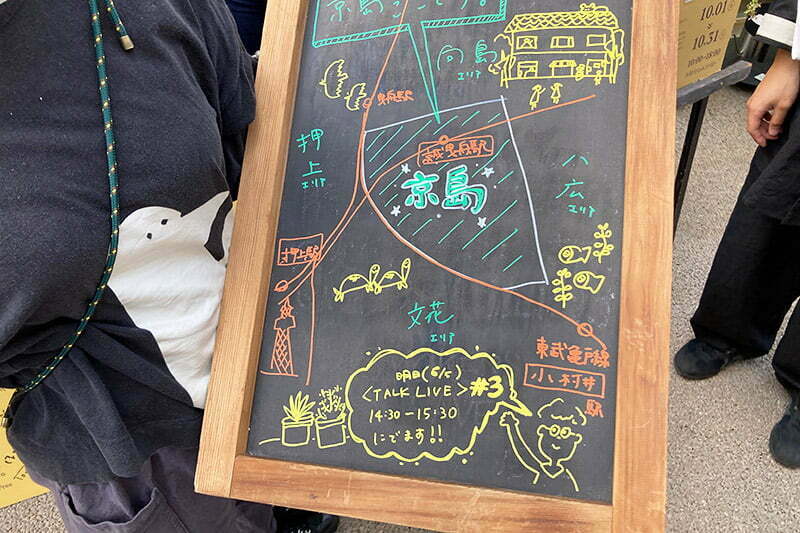 京島ってこです。
向島
エリア
曳舟駅
押上
エリア
京成曳舟駅
京島
八広
エリア
押上駅
文花
エリア
東武亀戸線
小村井
駅
明日(6/5)
〈TALK LIVE〉#3
14:30-15:30
にでます!!
10.01
10.31
10:00-18:00